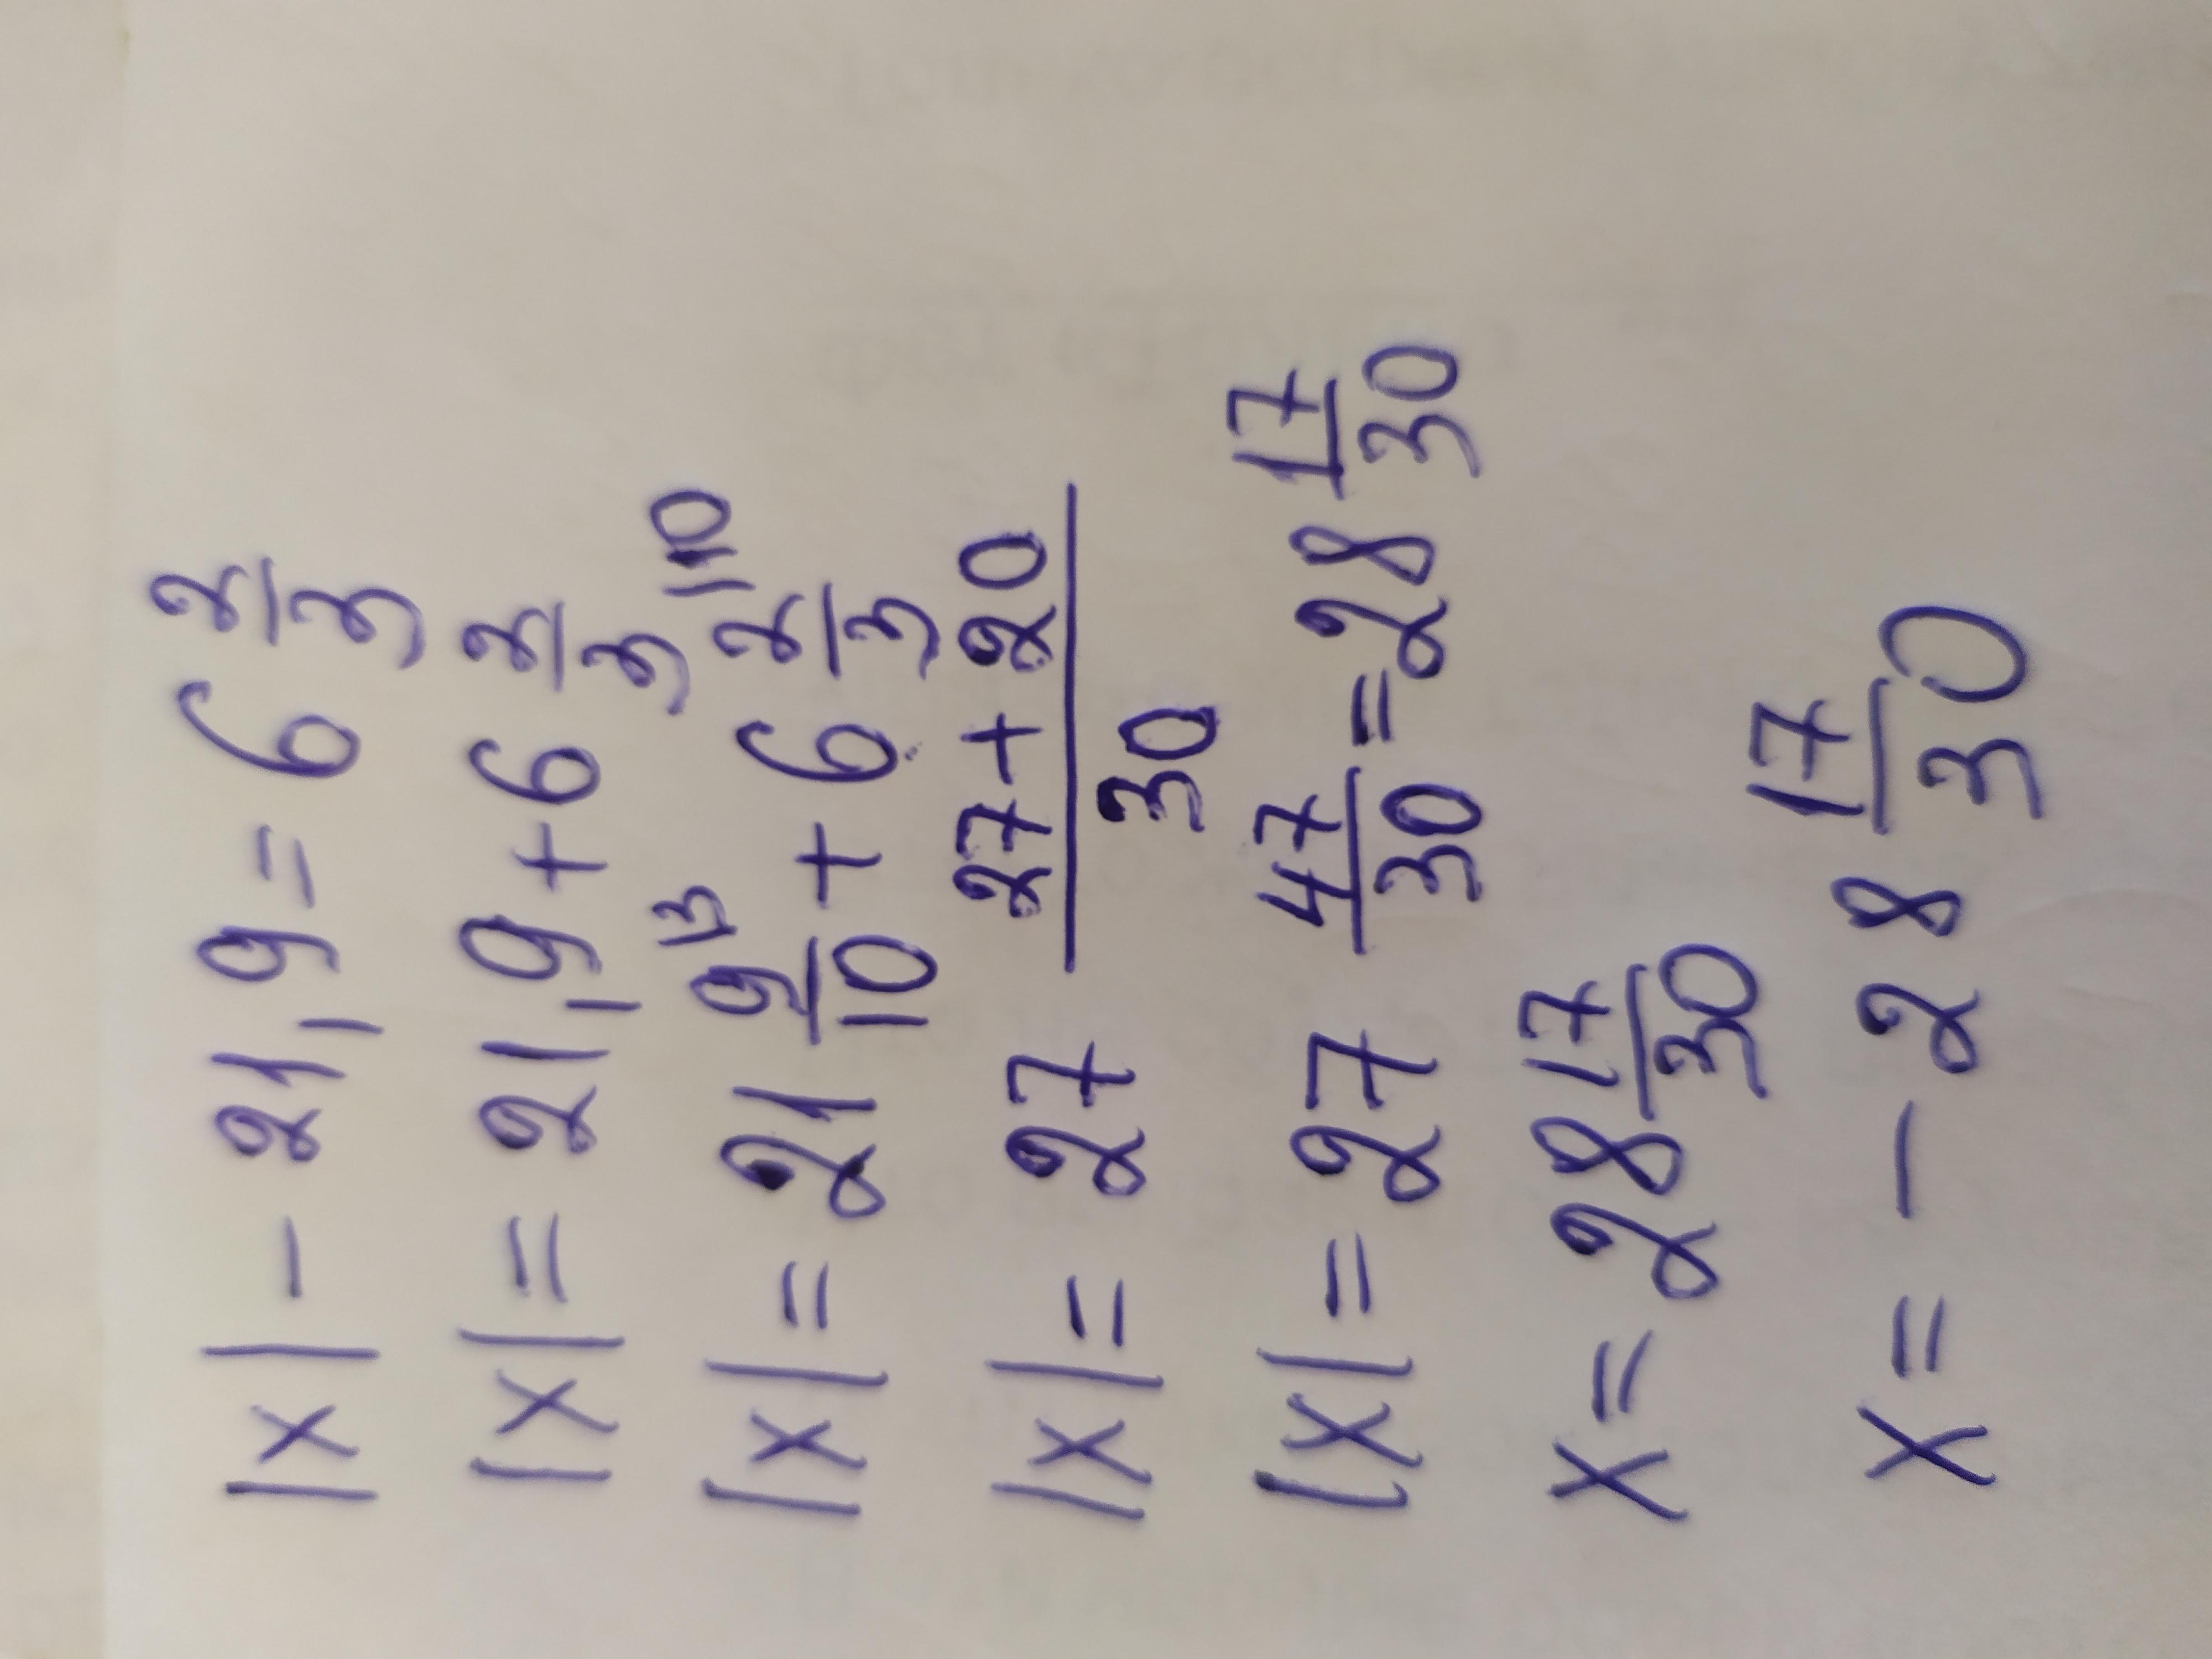 |x| - 21,9 = 6 2/3
|x| = 21,9 + 6 2/3
|x| = 21 9/10 |3 + 6 2/3 |10
|x| = 27 (27 + 20)/30
|x| = 27 47/30 = 28 17/30
x = 28 17/30
x = - 28 17/30